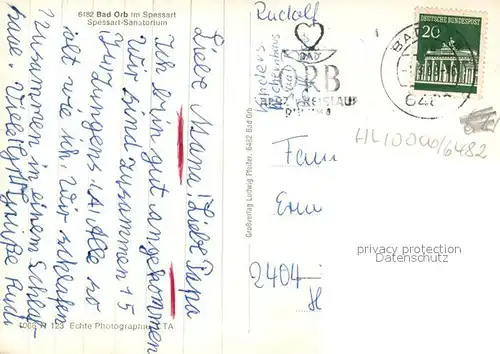 6482 Bad Orb im Spessart
Spessart-Sanatorium
Liebe Mama! Liebe Papa
Ich bin gut angekommen
wir sind zusammen 15
Jungens (A) Alle so
alt wie ich. Wir schlafen
zusammen in einem Schlaf-
Viele Grüße Rudi
4066 R 123 Echte Photographie ETA
Großverlag Ludwig Pfeifer, 6482 Bad Orb
Rudolf
BAD
ORB
HERZ KREISLAUF
DEUTSCHE BUNDESPOST
20
BAD
6482
HL10000/6482
Fam
2404
privacy protection
privacy protection